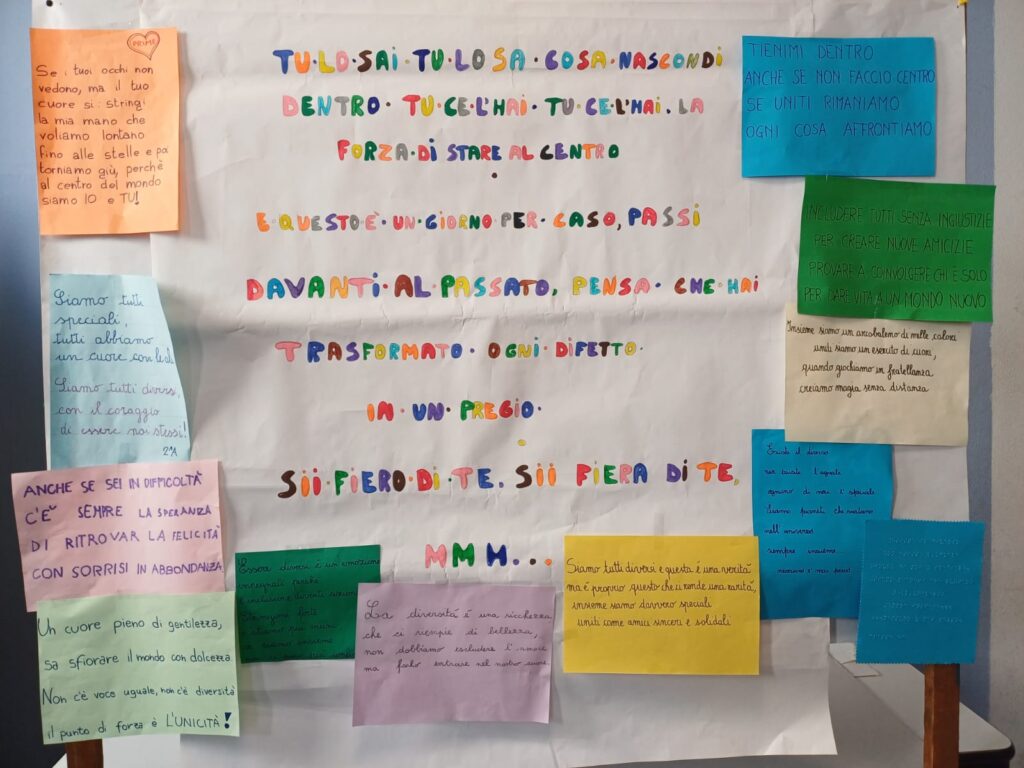 TU·LO·SAI·TU·LO SA·COSA·NASCONDI
DENTRO·TU·CE·L'HAI·TU·CE·L'HAI.LA
FORZA·DI STARE AL CENTRO
E·QUESTO·È·UN·GIORNO·PER·CASO, PASSI
DAVANTI·AL·PASSATO, PENSA·CHE·HAI
TRASFORMATO·OGNI·DIFETTO·
IN·UN·PREGIO·
SII·FIERO·DI·TE. SII FIERA DI TE,
MMH...
PRIME
Se i tuoi occhi non
vedono, ma il tuo
cuore si: stringi
la mia mano che
voliamo lontano
fino alle stelle e poi
torniamo giù, perchè
al centro del mondo
siamo IO e TU!
Siamo tutti
speciali,
tutti abbiamo
un cuore con le ali
Siamo tutti diversi,
con il coraggio
di essere noi stessi!
2ªA
ANCHE SE SEI IN DIFFICOLTÀ
C'È SEMPRE LA SPERANZA
DI RITROVAR LA FELICITÀ
CON SORRISI IN ABBONDANZA
Un cuore pieno di gentilezza,
sa sfiorare il mondo con dolcezza.
Non c'è voce uguale, non c'è diversità
il punto di forza è L'UNICITÀ!
Essere diversi è un'emozione
La diversità è una ricchezza
che si riempie di bellezza,
non dobbiamo escludere l'amore
ma farlo entrare nel nostro cuore.
Siamo tutti diversi e questa è una verità
ma è proprio questo che ci rende una rarità,
insieme siamo davvero speciali
uniti come amici sinceri e solidali
TIENIMI DENTRO
ANCHE SE NON FACCIO CENTRO
SE UNITI RIMANIAMO
OGNI COSA AFFRONTIAMO
INCLUDERE TUTTI SENZA INGIUSTIZIE
PER CREARE NUOVE AMICIZIE
PROVARE A COINVOLGERE CHI È SOLO
PER DARE VITA A UN MONDO NUOVO
Insieme siamo un arcobaleno di mille colori
uniti siamo un esercito di cuori,
quando giochiamo in fratellanza
creiamo magia senza distanza
il diverso
l'uguale
ognuno di noi è speciale
Siamo pianeti che ruotano
nell'universo
sempre insieme...